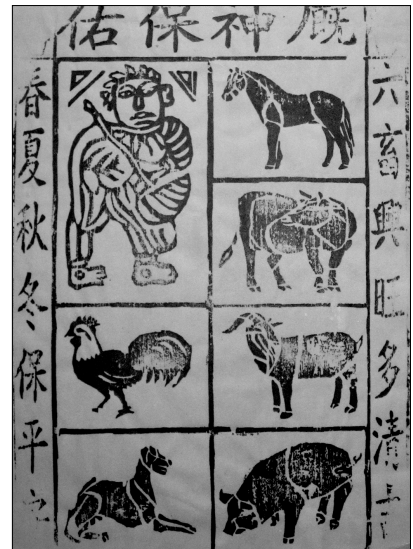 厩神保佑
六畜興旺多清吉
春夏秋冬保平安